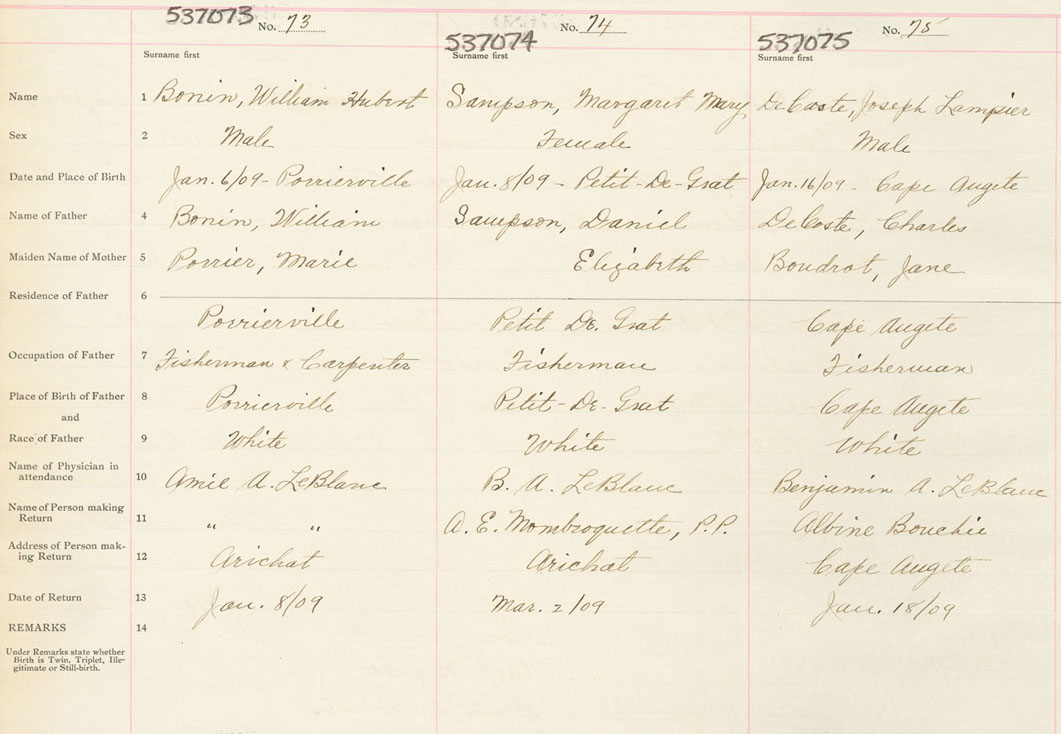 537073 No. 73
537074 No. 74
537075 No. 75
Surname first Surname first Surname first
Name 1 Bonin, William Hubert Sampson, Margaret Mary DeCoste, Joseph Lampier
Sex 2 Male Female Male
Date and Place of Birth 3 Jan. 6/09 - Poirrierville Jan. 8/09 - Petit-De-Grat Jan. 16/09 - Cape Augete
Name of Father 4 Bonin, William Sampson, Daniel DeCoste, Charles
Maiden Name of Mother 5 Porrier, Marie Elizabeth Boudrot, Jane
Residence of Father 6
Porrierville Petit De. Grat Cape Augete
Occupation of Father 7 Fisherman & Carpenter Fisherman Fisherman
Place of Birth of Father 8 Porrierville Petit-De-Grat Cape Augete
and
Race of Father 9 White White White
Name of Physician in
attendance 10 Amie A. LeBlanc B. A. LeBlanc Benjamin A. LeBlanc
Name of Person making
Return 11 " " A. E. Mombroquette, P.P. Albine Bouchie
Address of Person mak-
ing Return 12 Arichat Arichat Cape Augete
Date of Return 13 Jan. 8/09 Mar. 2/09 Jan. 18/09
REMARKS 14
Under Remarks state whether
Birth is Twin, Triplet, Ille-
gitimate or Still-birth.